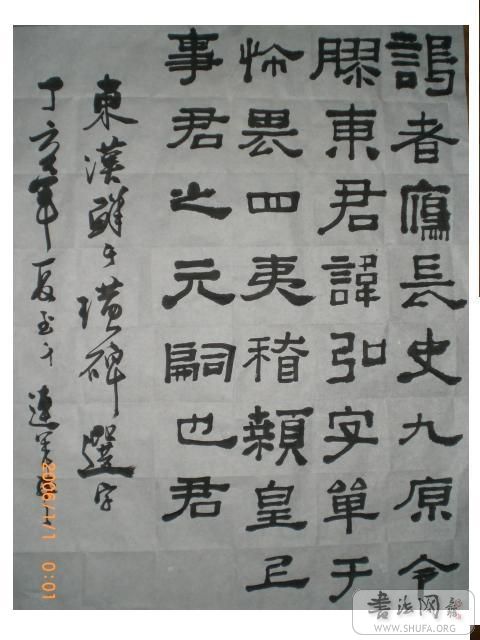 謁者鴈長史九原令
膠東君諱弘字單于
怖畏四夷稽顙皇上
事君之元嗣也君
東漢鮮于璜碑選字
丁亥年夏至于連
2006/1/1 0:01
書法网
WWW.SHUFA.ORG